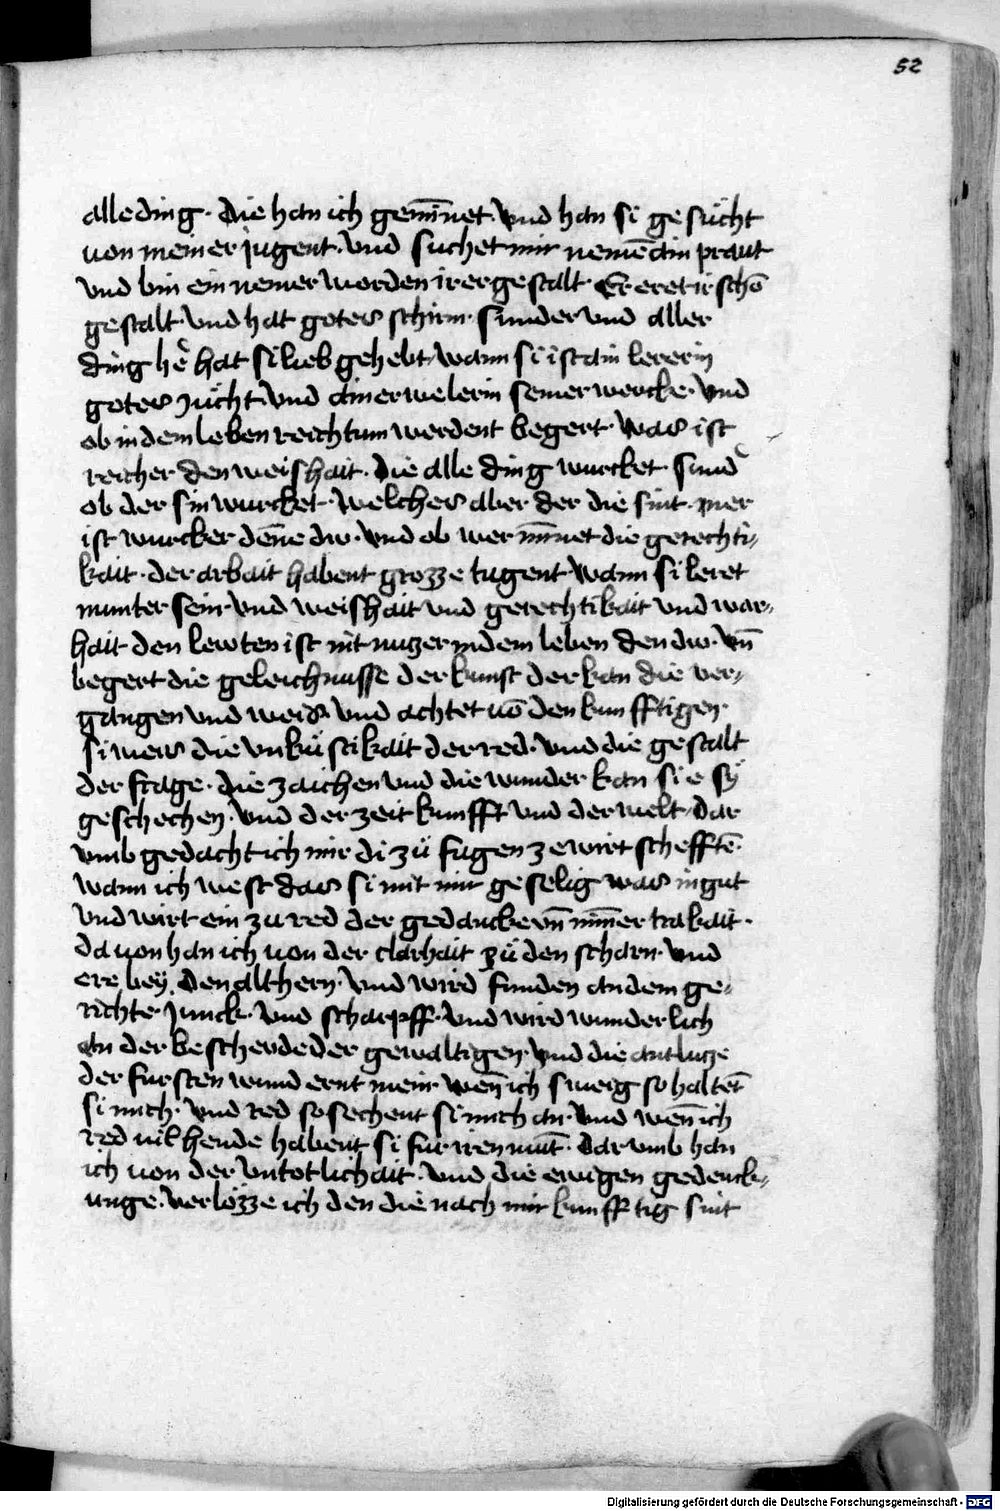 52
alle ding · die han ich gemīnet · vnd han si gesücht
von meiner jugent · vnd suchet mir nemē ain praut
vnd bin ein nemer worden irer gestalt · Er eret ir schō
gestalt · vnd hat gotes schirm · sunder vnd aller
ding he hat si lieb gehebt · wann si ist ain lererin
gotes zücht vnd ain erwelerin seiner wercke · vnd
ob in dem leben reichtum werdent begert · was ist
reicher den weishait · die alle ding wurcket · sund
ob der sin wurcket · welcher aber der die sint · mer
ist wurcker dēne dw · vnd ob wer mīnet die gerechti-
kait · der arbait habent grozze tugent · wann si leret
munter sein · vnd weishait vnd gerechtikait vnd war-
hait den lewten ist nit nuzer in dem leben den dw · vn̄
begert die geleichnusse der kunst der kan die ver-
gangen vnd weis vnd achtet vō den kunfftigen ·
si weis die vnküstikait der red · vnd die gestalt
der frage · die zaichen vnd die wunder kan si e sy
geschechen · vnd der zeit kunfft vnd der welt · dar
vmb gedacht ich mir di zü fügen ze wirtschefftē ·
wann ich west das si mit mir geselig was in gut
vnd wirt ein zu red der gedancke vn̄ mīner trakait ·
da von han ich von der clarhait zü den scharn · vnd
ere bey den althern · vnd wird funden an dem ge-
richte junck · vnd scharpff · vnd wird wunderlich
an der bescheude der gewaltigen · vnd die antlutze
der fursten wund ernt mein · wen̄ ich sweig so haltet̄
si mich · vnd red so sechent si mich an · vnd wen̄ ich
red vil hende habent si fur iren mūt · dar vmb han
ich von der vntotlichait · vnd die ewigen gedenck-
unge · verlözze ich den die nach mir kunfftig sint
Digitalisierung gefördert durch die Deutsche Forschungsgemeinschaft - DFG